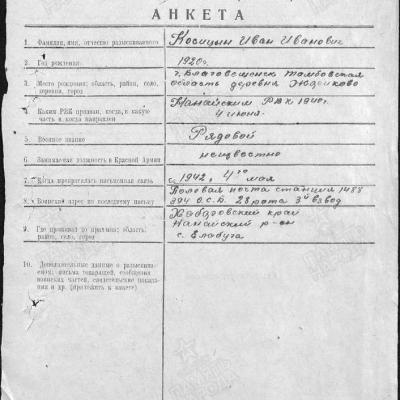 АНКЕТА
1. Фамилия, имя, отчество разыскиваемого
Косицын Иван Иванович
2. Год рождения:
1920г.
3. Место рождения: область, район, село, деревня, город
г. Благовещенск Тамбовская
область деревня Юденково
4. Каким РВК призван, когда, в какую часть и когда направлен
Нанайским РВК 1940г.
4 июня.
5. Воинское звание
Рядовой
6. Занимаемая должность в Красной Армии
неизвестно
7. Когда прекратилась письменная связь
с 1942г. 4го мая
8. Воинский адрес по последнему письму
Полевая почта станция 1488
394 О.С.Б. 28 рота 3й взвод
9. Где проживал до призыва: область, район, село, город
Хабаровский край
Нанайский р-он
с. Елабуга
10. Дополнительные данные о разыскиваемом: письма товарищей, сообщения воинских частей, свидетельские показания и др. (приложить к анкете)
ПАМЯТЬ
НАРОДА